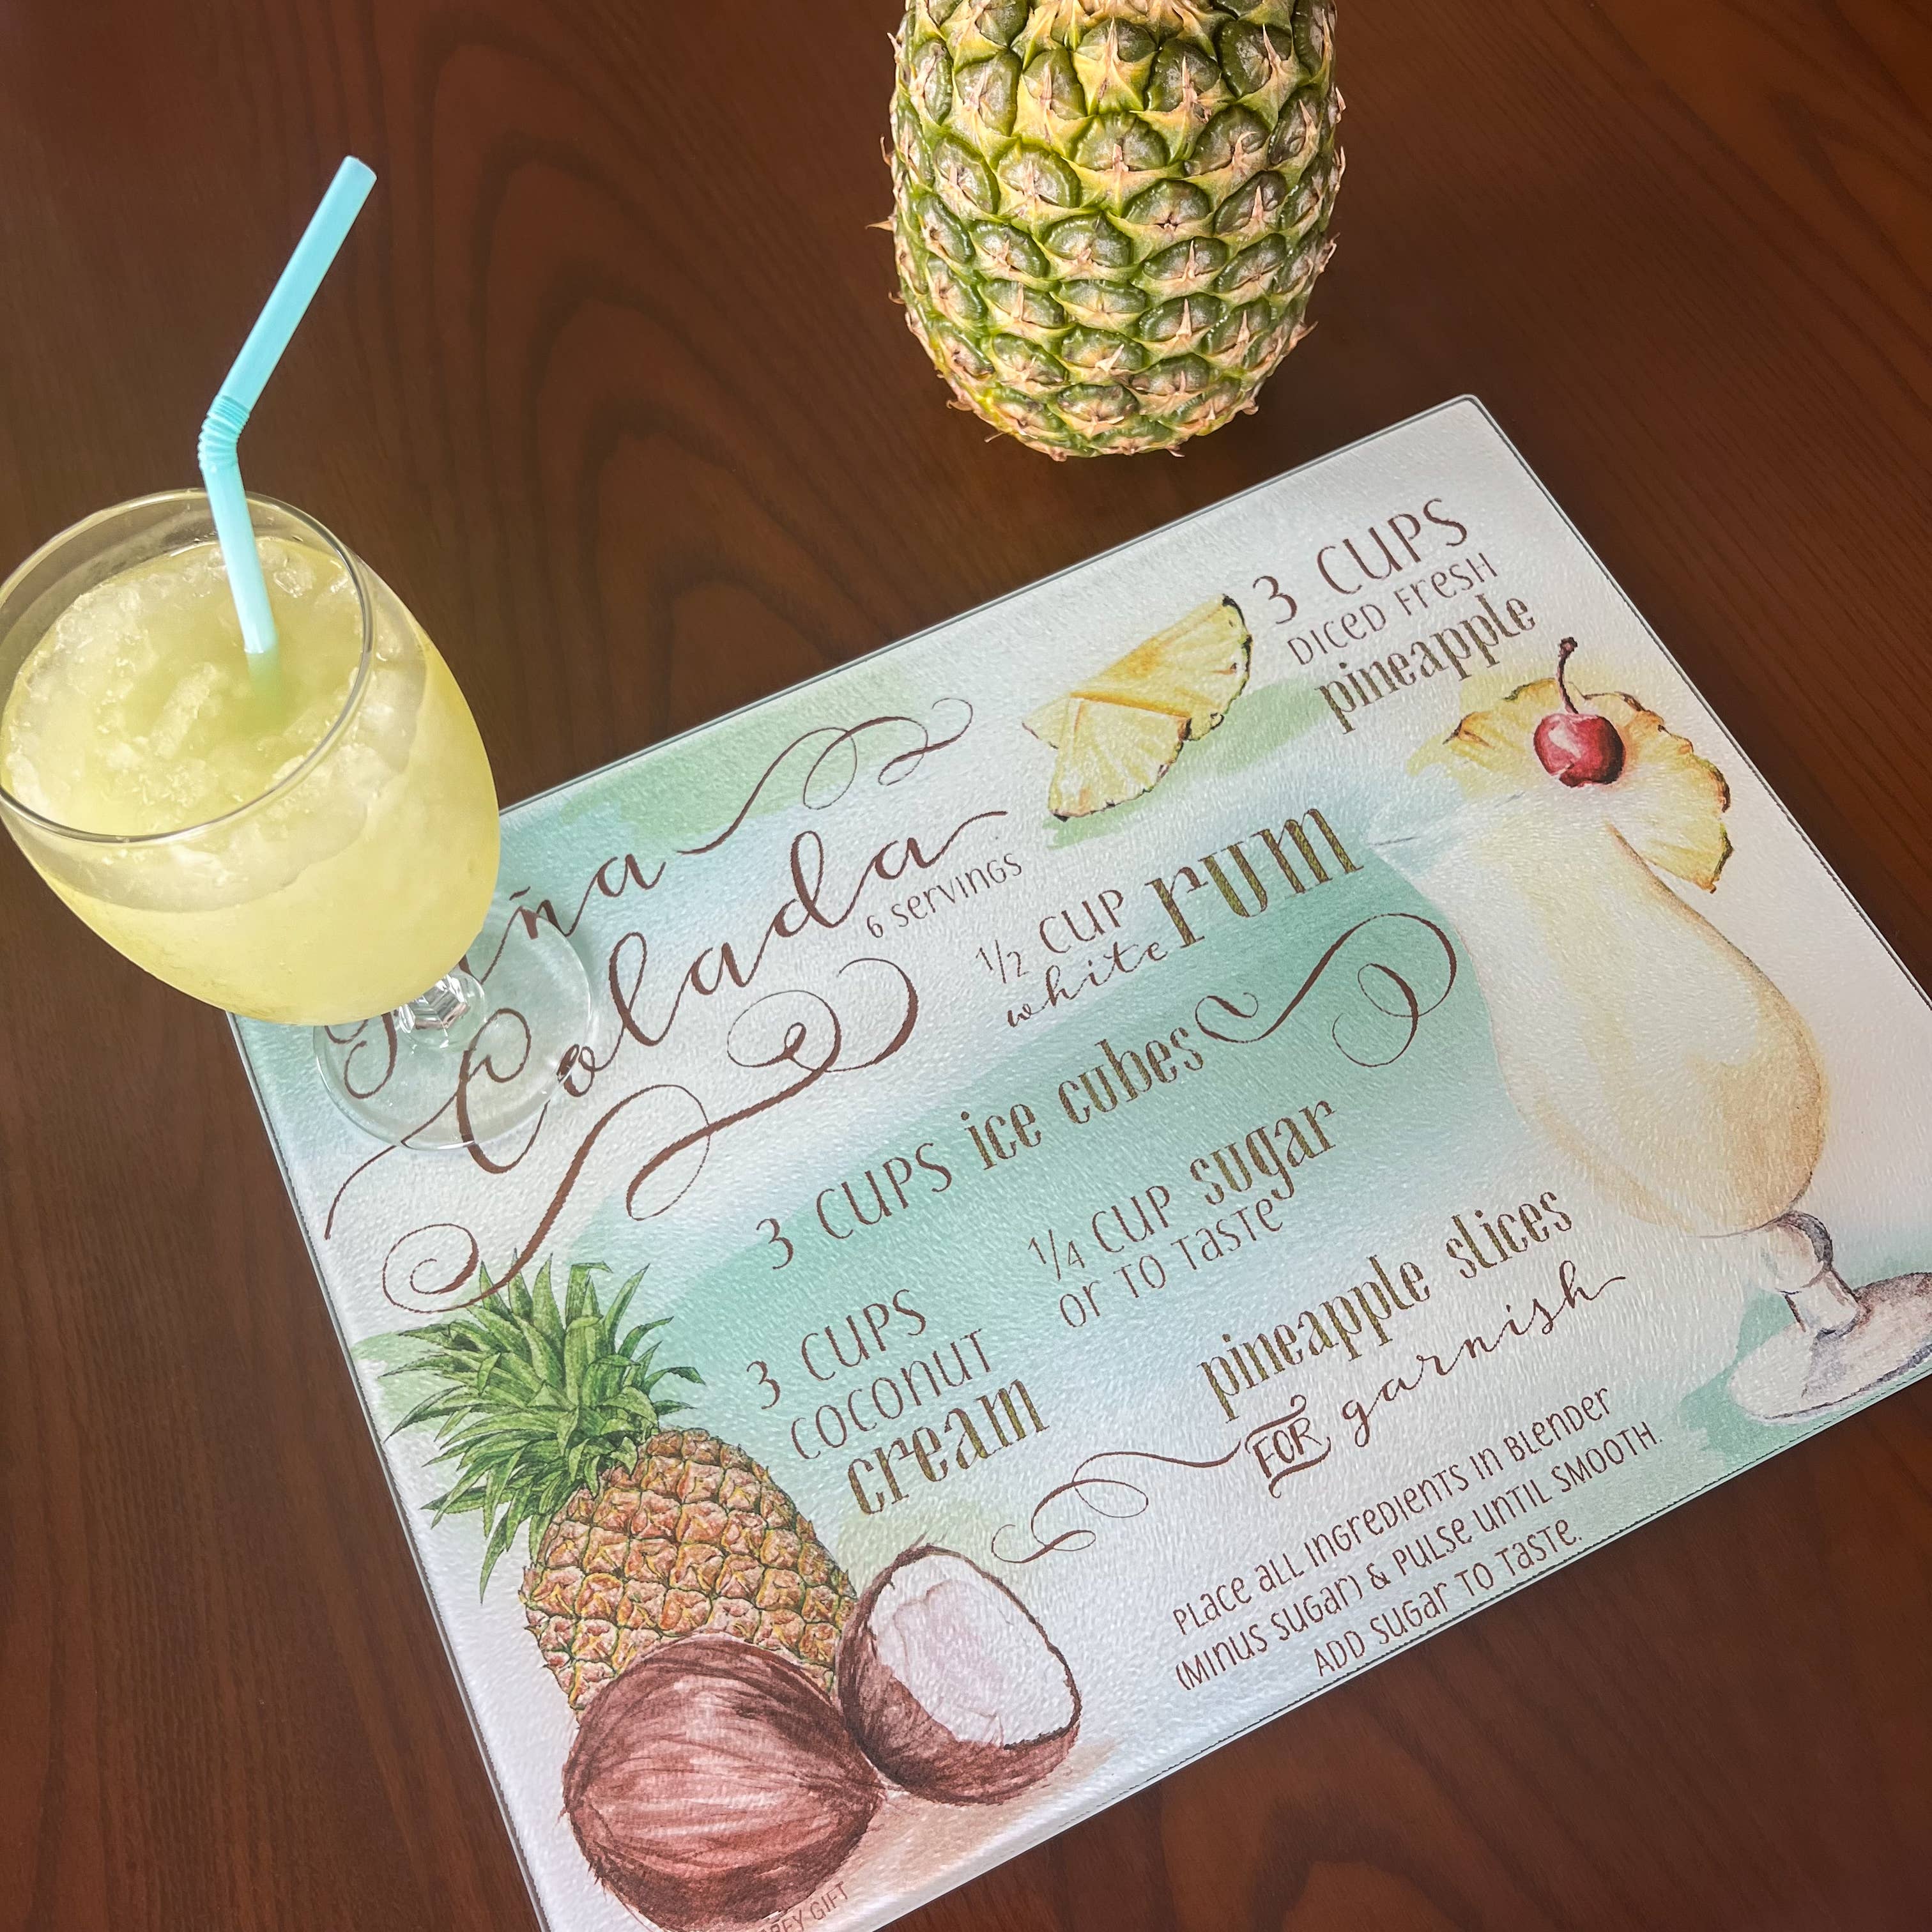 Piña
Colada
6 servings
3 CUPS
DICED FRESH
pineapple
1/2 CUP
white rum
3 CUPS ice cubes
1/4 CUP sugar
OR TO TASTE
3 CUPS
COCONUT
cream
pineapple slices
FOR garnish
PLACE ALL INGREDIENTS IN BLENDER
(MINUS SUGAR) & PULSE UNTIL SMOOTH.
ADD SUGAR TO TASTE.
GIFT